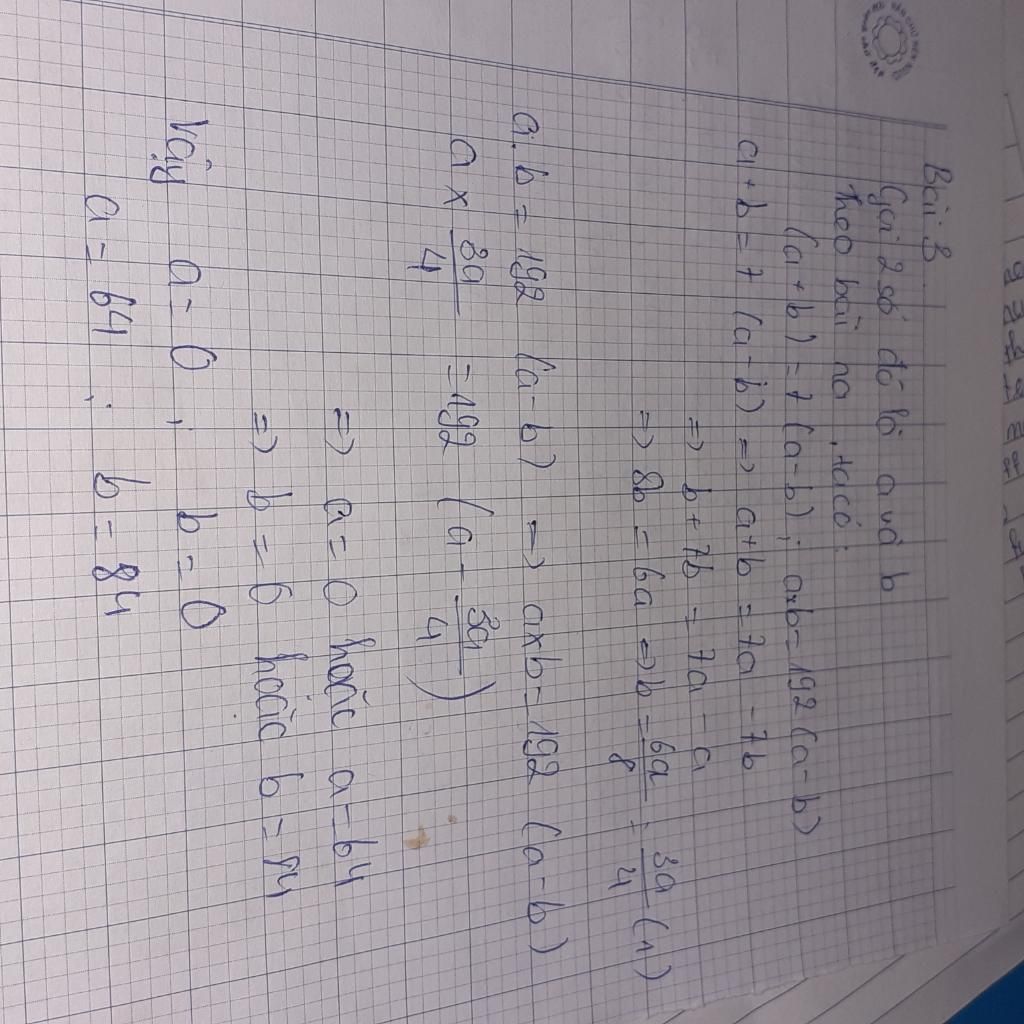 Bài 3
Gọi 2 số đó là a và b
theo bài ra, ta có:
(a+b) = 7 (a-b); axb = 192 (a-b)
a+b = 7 (a-b) => a+b = 7a - 7b
=> b+7b = 7a - a
=> 8b = 6a => b = 6a/8 = 3a/4 (1)
a.b = 192 (a-b) => axb = 192 (a-b)
a x 3a/4 = 192 (a - 3a/4)
=> a = 0 hoặc a = 64
=> b = 0 hoặc b = 84
Vậy a = 0; b = 0
a = 64; b = 84